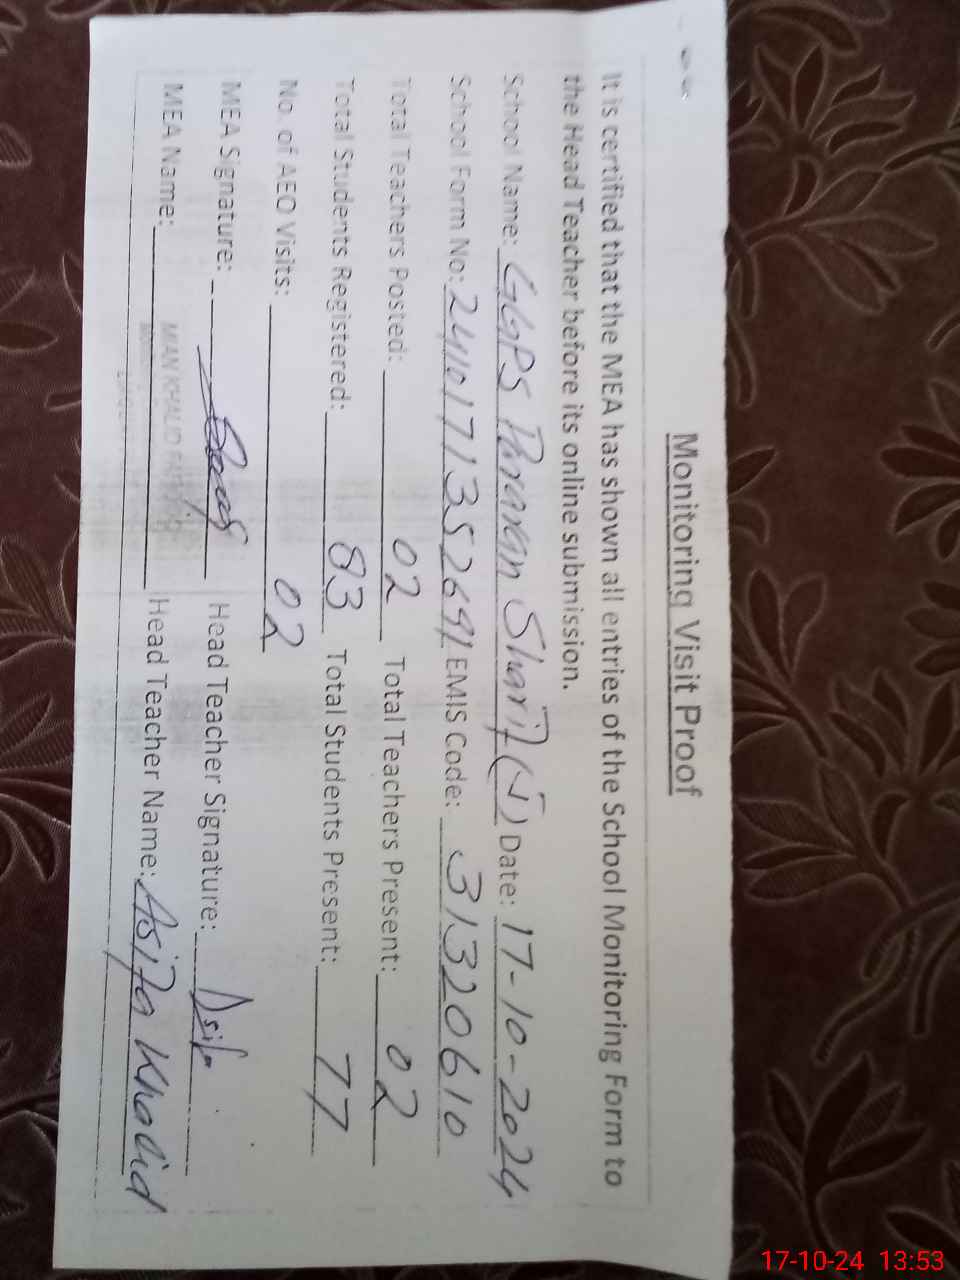 Monitoring Visit Proof
It is certified that the MEA has shown all entries of the School Monitoring Form to
the Head Teacher before its online submission.
School Name: GGPS Sharif (4) Date: 17-10-2024
School Form No: EMIS Code: 31320610
Total Teachers Posted: 02 Total Teachers Present: 02
Total Students Registered: 83 Total Students Present: 77
No. of AEO Visits: 02
MEA Signature: Head Teacher Signature: Asifa
MEA Name: Head Teacher Name: Asifa Khalid
MIAN KHALID
17-10-24 13:53